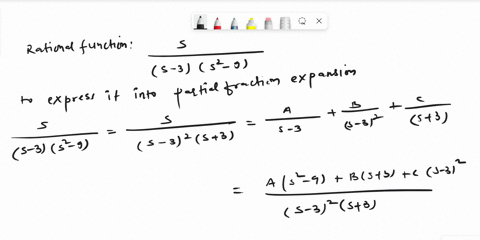 Rational function: s / (s-3) (s²-9)
to express it into partial fraction expansion
s / (s-3)(s²-9) = s / (s-3)²(s+3) = A / s-3 + B / (s-3)² + C / (s+3)
= A(s²-9) + B(s+3) + C(s-3)² / (s-3)²(s+3)